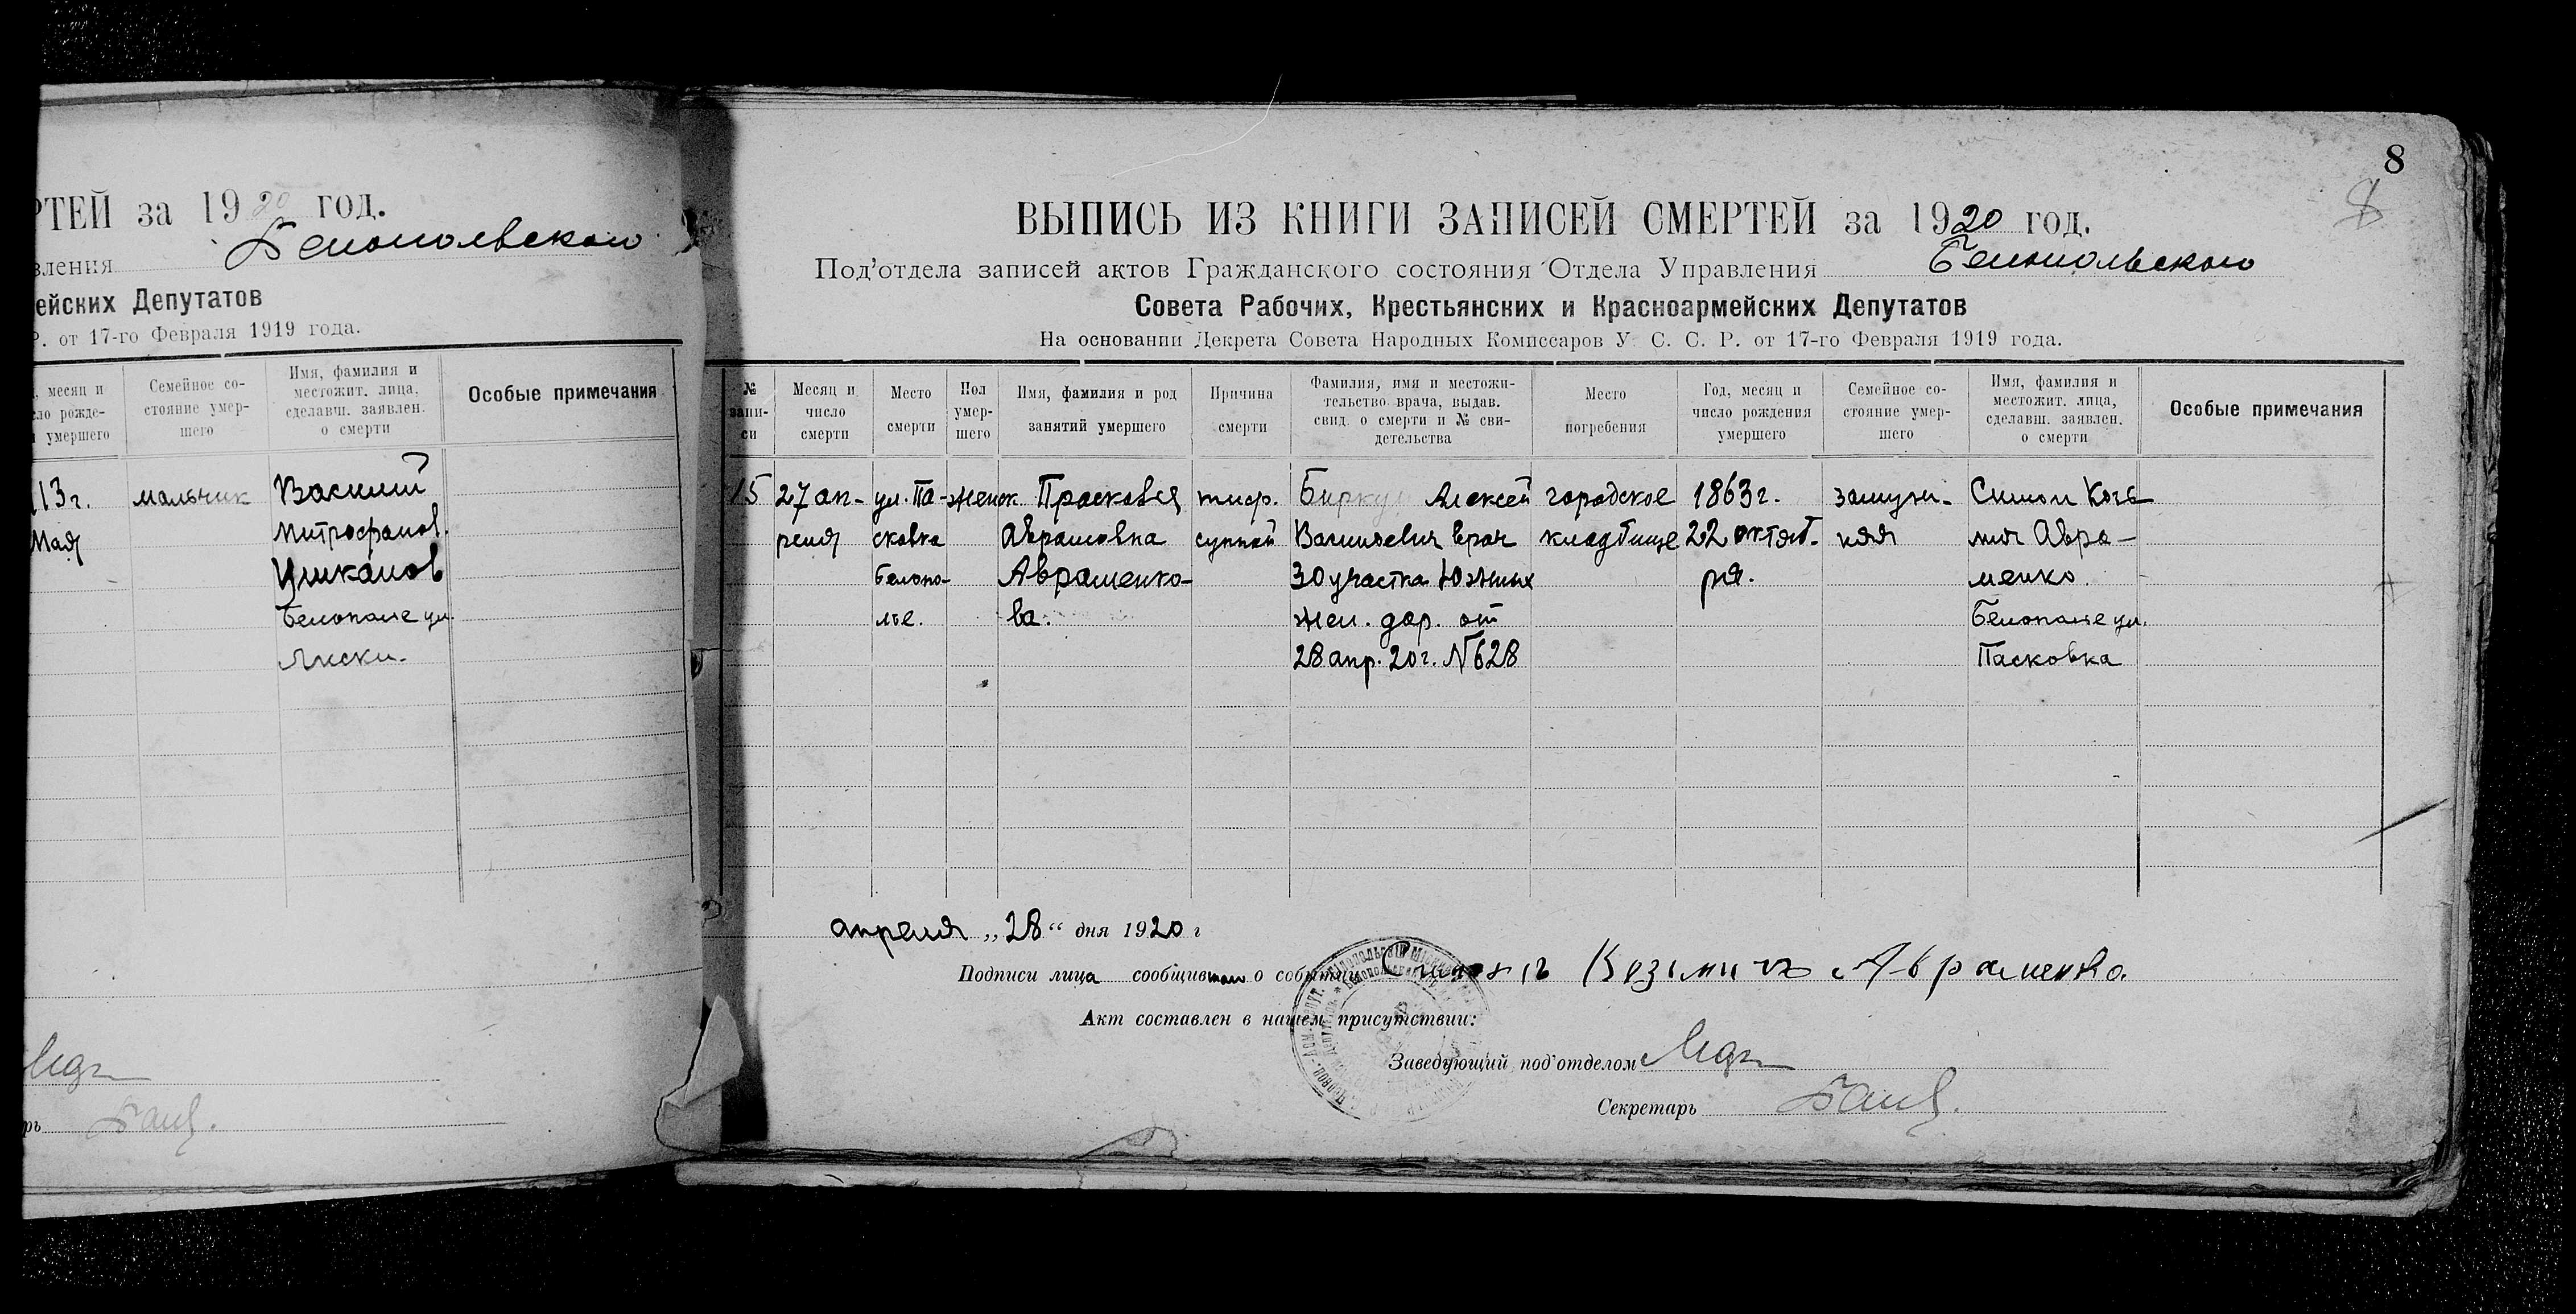 РТЕЙ за 1920 год.
вления Белопольского
ейских Депутатов
Р. от 17-го Февраля 1919 года.
месяц и
сло рожде-
умершего
Семейное со-
стояние умер-
шего
Имя, фамилия и
местожит. лица,
сделавш. заявлен.
о смерти
Особые примечания
13 г.
Мая
мальчик
Василий
Митрофанов.
Белополе ул.
8
8
ВЫПИСЬ ИЗ КНИГИ ЗАПИСЕЙ СМЕРТЕЙ за 1920 год.
Под'отдела записей актов Гражданского состояния Отдела Управления Белопольского
Совета Рабочих, Крестьянских и Красноармейских Депутатов
На основании Декрета Совета Народных Комиссаров У. С. С. Р. от 17-го Февраля 1919 года.
№
запи-
си
Месяц и
число
смерти
Место
смерти
Пол
умер-
шего
Имя, фамилия и род
занятий умершего
Причина
смерти
Фамилия, имя и местожи-
тельство врача, выдав.
свид. о смерти и № сви-
детельства
Место
погребения
Год, месяц и
число рождения
умершего
Семейное со-
стояние умер-
шего
Имя, фамилия и
местожит. лица,
сделавш. заявлен.
о смерти
Особые примечания
15
27 ап-
реля
ул. Па-
сковка
Белопо-
лье.
женск.
Прасковья
Аврамовна
Авраменко-
ва.
тиф.
сыпной
Алексей
Васильевич врач
30 участка Южных
жел. дор. от
28 апр. 20 г. № 628
городское
кладбище
1863 г.
22 октяб-
ря.
замуж-
няя
Симон Козь-
мич Авра-
менко.
Белополе ул.
Пасковка
апреля „28“ дня 1920 г
Подписи лица сообщившаго о событии Симонъ Козьмичъ Авраменко.
Акт составлен в нашем присутствии:
Заведующий под'отделом
Секретарь